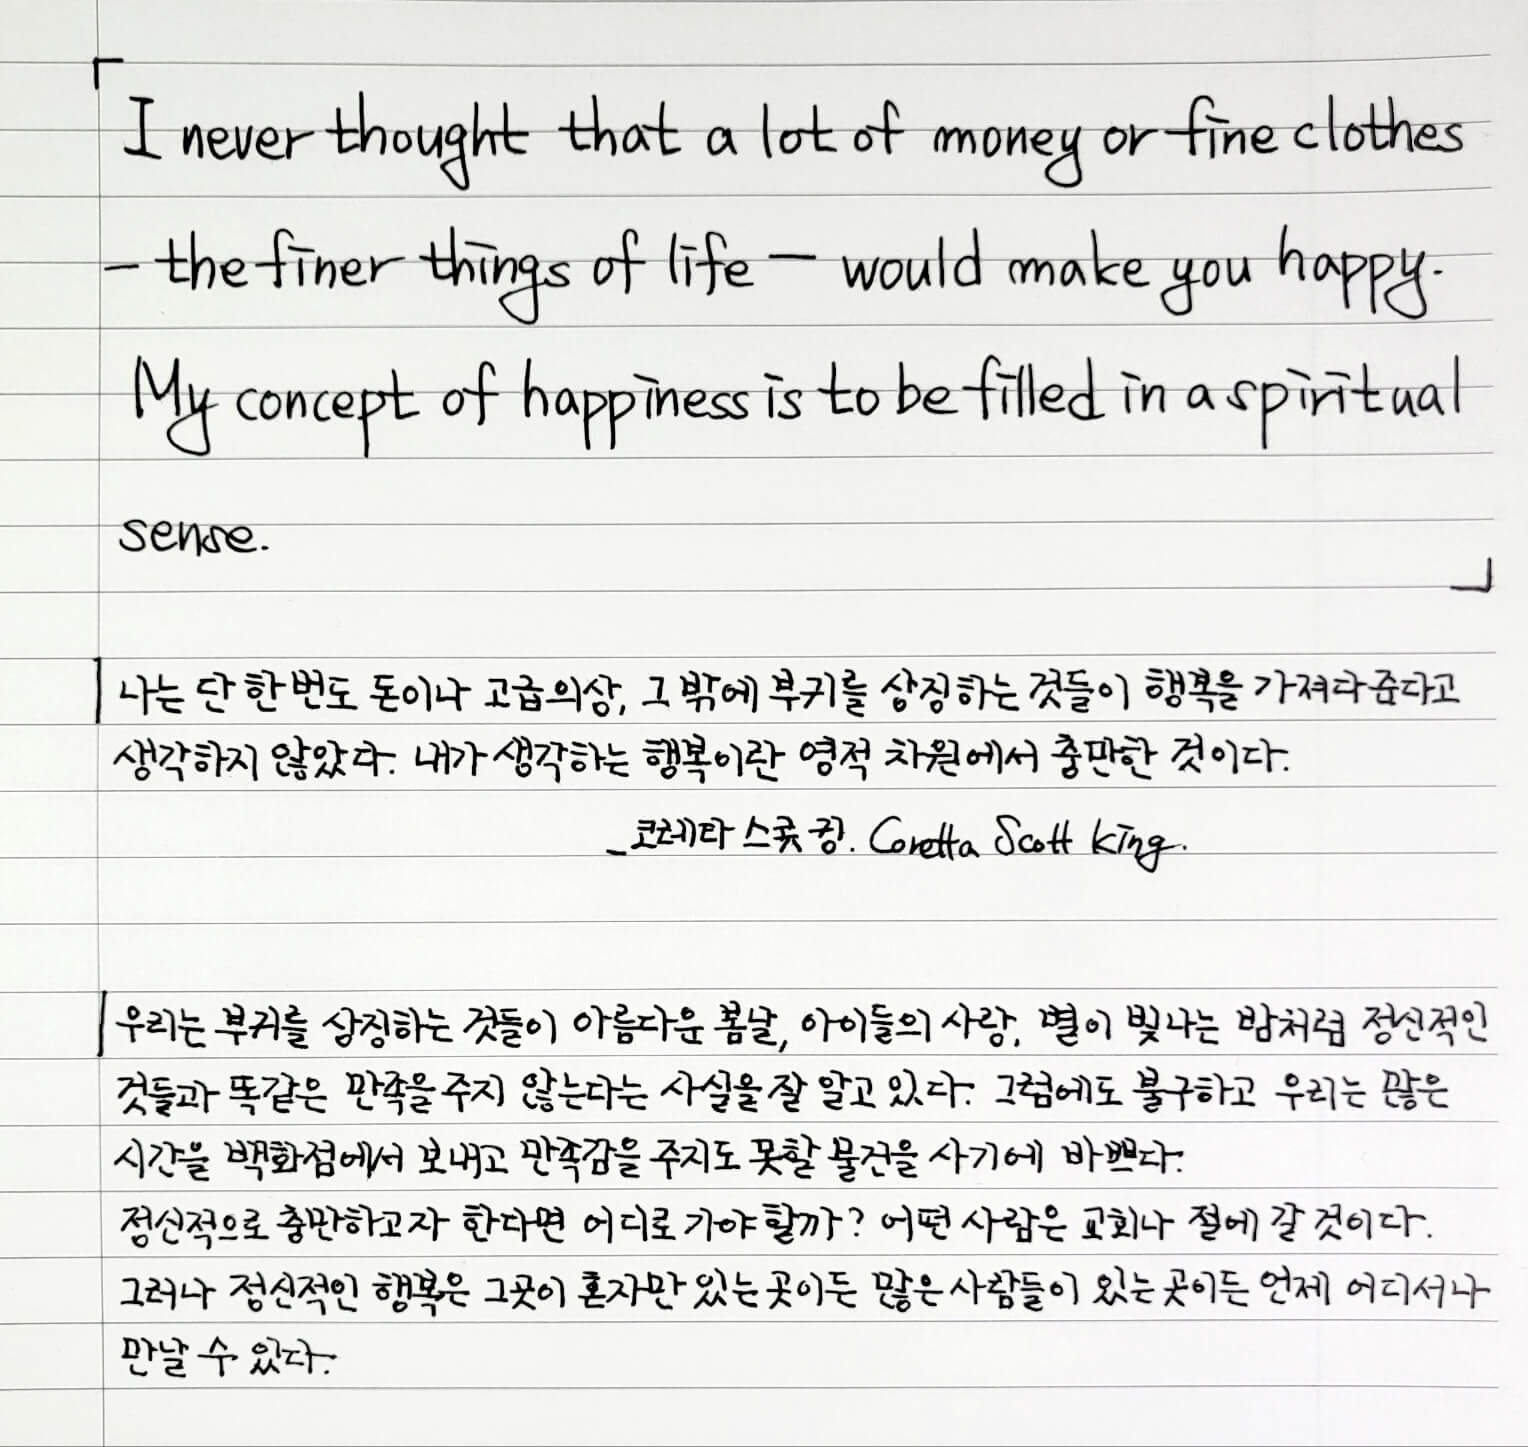 「I never thought that a lot of money or fine clothes
- the finer things of life - would make you happy.
My concept of happiness is to be filled in a spiritual
sense.」
나는 단 한 번도 돈이나 고급의상, 그 밖에 부귀를 상징하는 것들이 행복을 가져다 준다고
생각하지 않았다. 내가 생각하는 행복이란 영적 차원에서 충만한 것이다.
_코레타 스콧 킹. Coretta Scott King.
우리는 부귀를 상징하는 것들이 아름다운 봄날, 아이들의 사랑, 별이 빛나는 밤처럼 정신적인
것들과 똑같은 만족을 주지 않는다는 사실을 잘 알고 있다. 그럼에도 불구하고 우리는 많은
시간을 백화점에서 보내고 만족감을 주지도 못할 물건을 사기에 바쁘다.
정신적으로 충만하고자 한다면 어디로 가야 할까? 어떤 사람은 교회나 절에 갈 것이다.
그러나 정신적인 행복은 그곳이 혼자만 있는 곳이든 많은 사람들이 있는 곳이든 언제 어디서나
만날 수 있다.